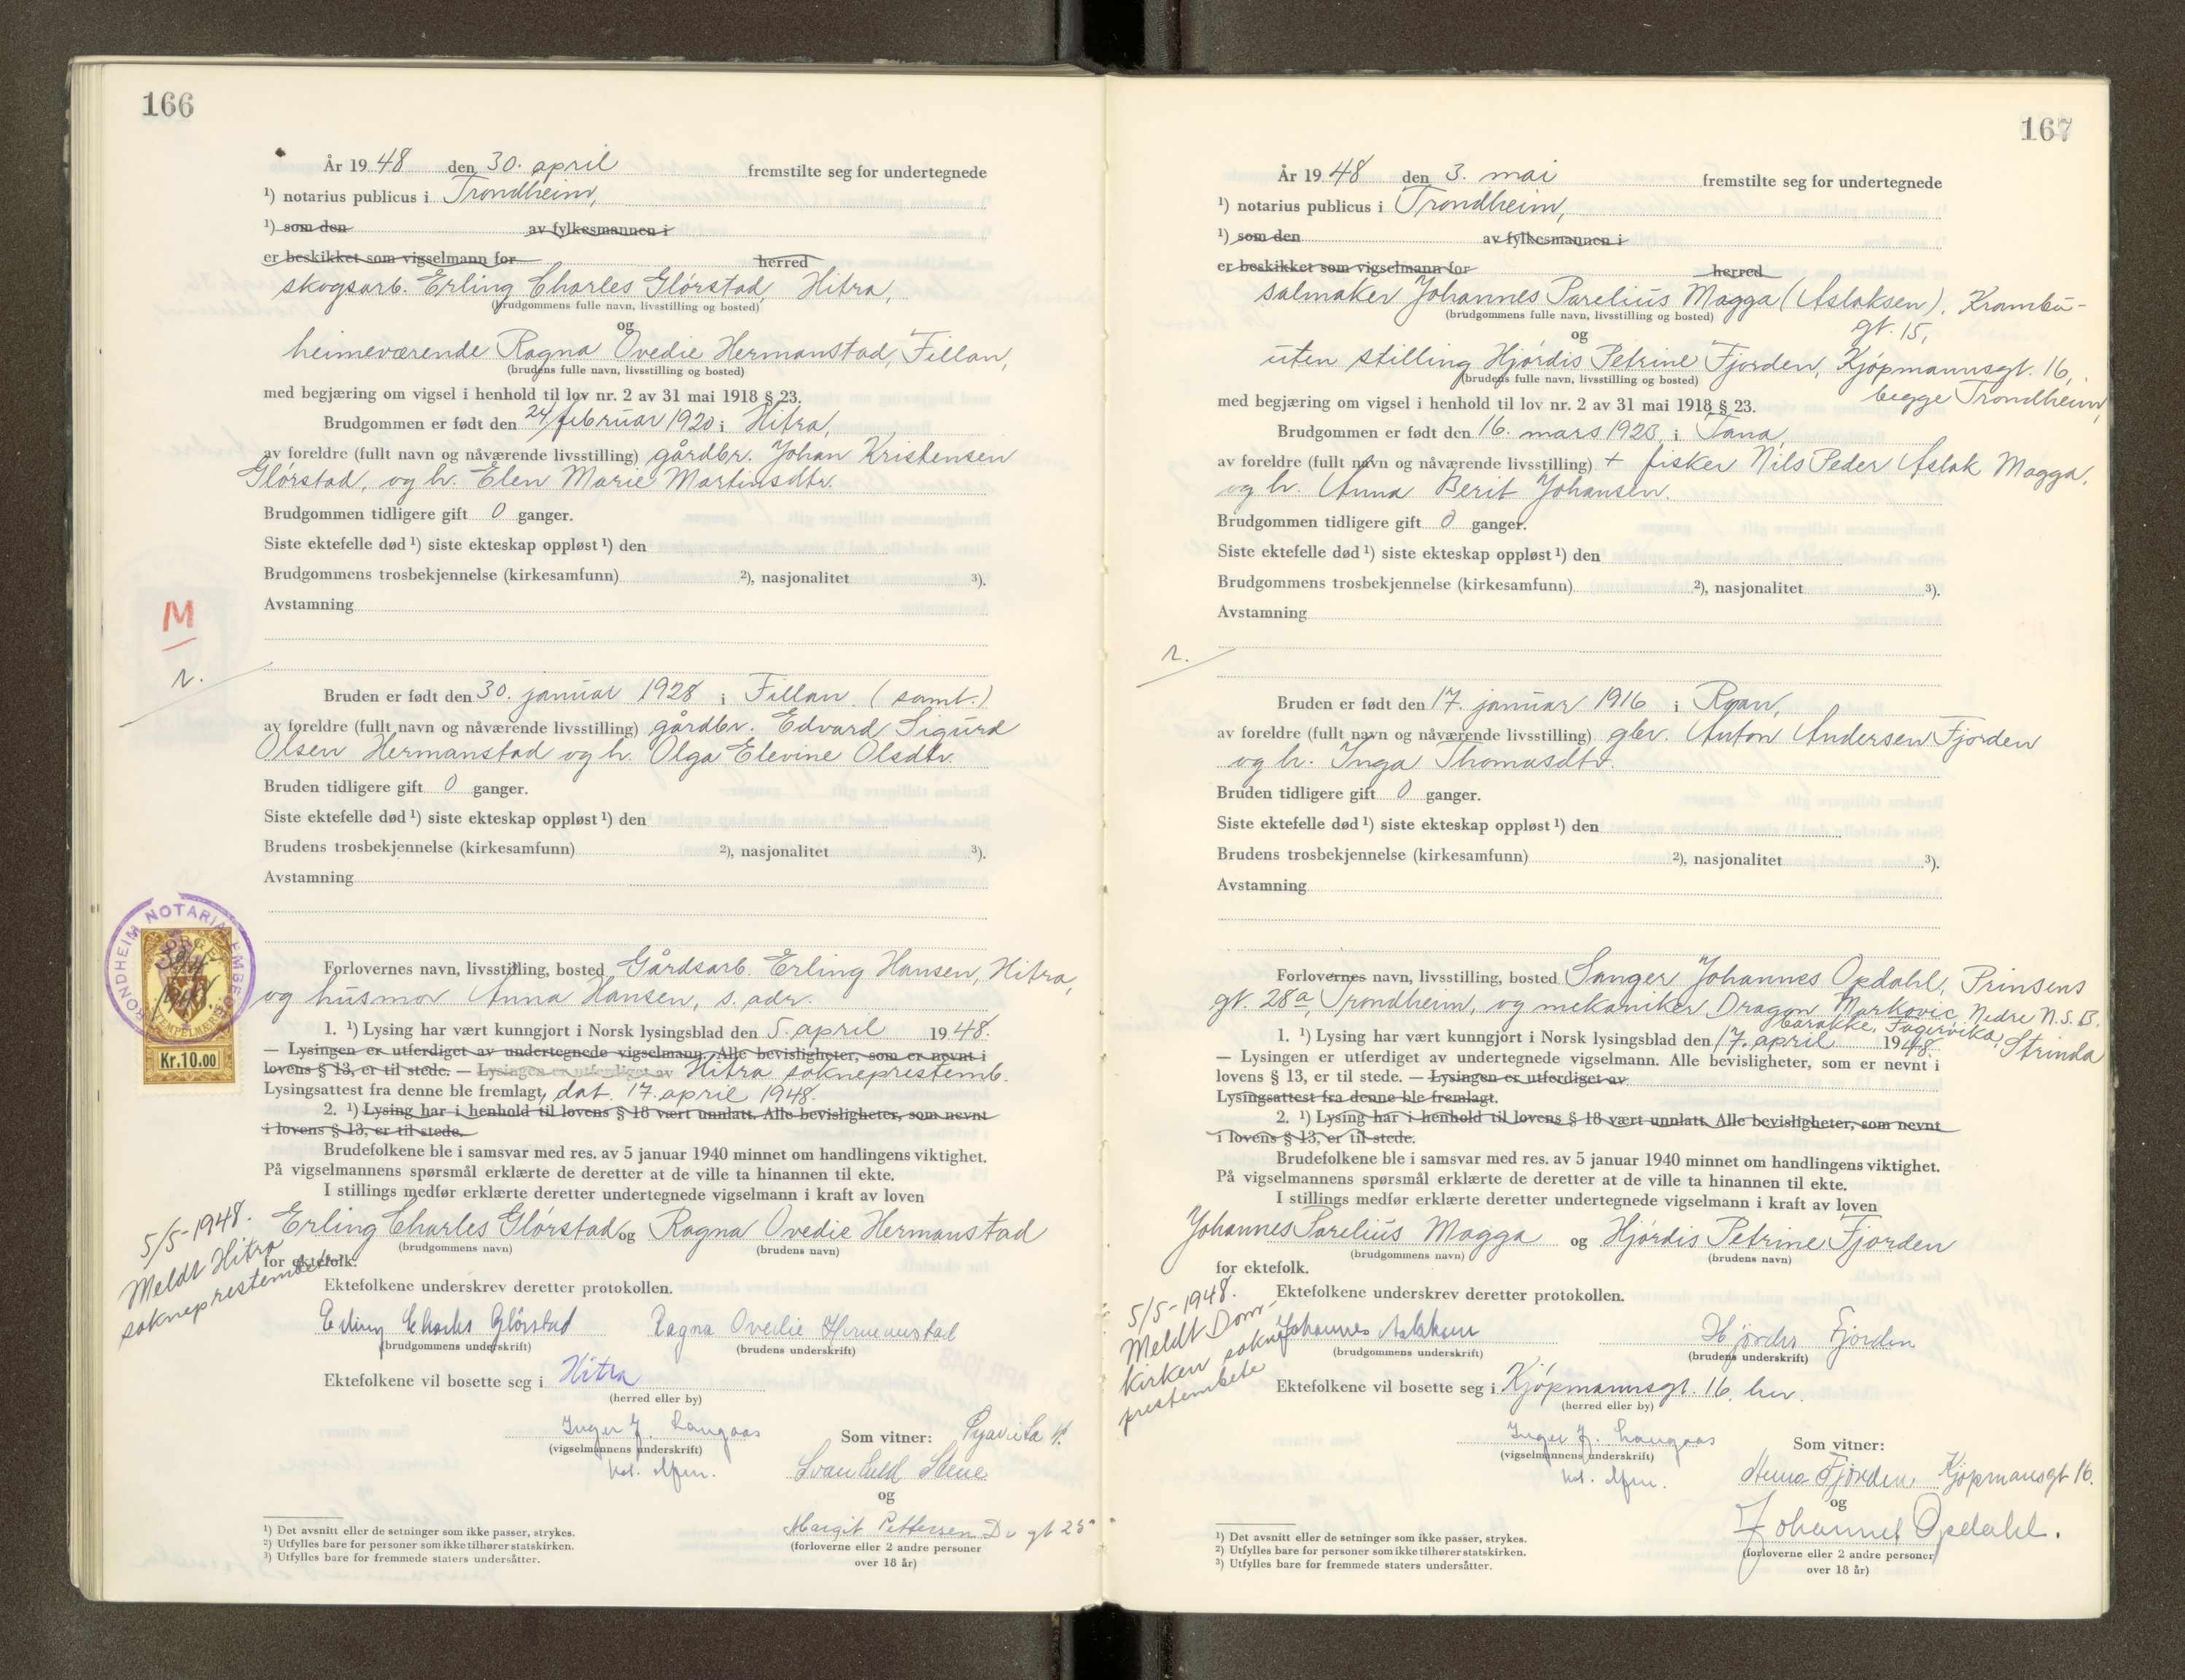 166
År 19 48 den 30. april fremstilte seg for undertegnede
¹) notarius publicus i Trondheim,
¹) som den av fylkesmannen i
er beskikket som vigselmann for herred
skogsarb. Erling Charles Glørstad, Hitra,
(brudgommens fulle navn, livsstilling og bosted)
og
heimeværende Ragna Ovedie Hermanstad, Fillan,
(brudens fulle navn, livsstilling og bosted)
med begjæring om vigsel i henhold til lov nr. 2 av 31 mai 1918 § 23.
Brudgommen er født den 24/februar 1920 i Hitra,
av foreldre (fullt navn og nåværende livsstilling) gårdbr. Johan Kristensen
Glørstad, og h. Elen Marie Martinsdtr.
Brudgommen tidligere gift 0 ganger.
Siste ektefelle død ¹) siste ekteskap oppløst ¹) den
Brudgommens trosbekjennelse (kirkesamfunn) ²), nasjonalitet ³).
Avstamning
M
r.
Bruden er født den 30. januar 1928 i Fillan (samt.)
av foreldre (fullt navn og nåværende livsstilling) gårdbr. Edvard Sigurd
Olsen Hermanstad og h. Olga Elevine Olsdtr.
Bruden tidligere gift 0 ganger.
Siste ektefelle død ¹) siste ekteskap oppløst ¹) den
Brudens trosbekjennelse (kirkesamfunn) ²), nasjonalitet ³).
Avstamning
TRONDHEIM NOTARIALEMBEDE
1948.
STEMPELMERKE
Kr.10.00
Forlovernes navn, livsstilling, bosted Gårdsarb. Erling Hansen, Hitra,
og husmor Anna Hansen, s. adr.
1. ¹) Lysing har vært kunngjort i Norsk lysingsblad den 5. april 19 48.
— Lysingen er utferdiget av undertegnede vigselmann. Alle bevisligheter, som er nevnt i
lovens § 13, er til stede. — Lysingen er utferdiget av Hitra sokneprestemb.
Lysingsattest fra denne ble fremlagt, dat. 17. april 1948.
2. ¹) Lysing har i henhold til lovens § 18 vært unnlatt. Alle bevisligheter, som nevnt
i lovens § 13, er til stede.
Brudefolkene ble i samsvar med res. av 5 januar 1940 minnet om handlingens viktighet.
På vigselmannens spørsmål erklærte de deretter at de ville ta hinannen til ekte.
I stillings medfør erklærte deretter undertegnede vigselmann i kraft av loven
Erling Charles Glørstad og Ragna Ovedie Hermanstad
(brudgommens navn) (brudens navn)
for ektefolk.
5/5-1948.
Meldt Hitra
sokneprestembete.
Ektefolkene underskrev deretter protokollen.
Erling Charles Glørstad Ragna Ovedie Hermanstad
(brudgommens underskrift) (brudens underskrift)
Ektefolkene vil bosette seg i Hitra
(herred eller by)
Inger J. Langaas
(vigselmannens underskrift)
Som vitner:
Svanhild Stene
og
Margit Pettersen
(forloverne eller 2 andre personer
over 18 år)
¹) Det avsnitt eller de setninger som ikke passer, strykes.
²) Utfylles bare for personer som ikke tilhører statskirken.
³) Utfylles bare for fremmede staters undersåtter.
167
År 19 48 den 3. mai fremstilte seg for undertegnede
¹) notarius publicus i Trondheim,
¹) som den av fylkesmannen i
er beskikket som vigselmann for herred
salmaker Johannes Parelius Magga (Aslaksen), Krambu-
gt. 15,
(brudgommens fulle navn, livsstilling og bosted)
og
uten stilling Hjørdis Petrine Fjorden, Kjøpmannsgt. 16,
begge Trondheim,
(brudens fulle navn, livsstilling og bosted)
med begjæring om vigsel i henhold til lov nr. 2 av 31 mai 1918 § 23.
Brudgommen er født den 16. mars 1923, i Tana,
av foreldre (fullt navn og nåværende livsstilling) + fisker Nils Peder Aslak Magga,
og h. Anna Berit Johansen.
Brudgommen tidligere gift 0 ganger.
Siste ektefelle død ¹) siste ekteskap oppløst ¹) den
Brudgommens trosbekjennelse (kirkesamfunn) ²), nasjonalitet ³).
Avstamning
r.
Bruden er født den 17. januar 1916 i Roan,
av foreldre (fullt navn og nåværende livsstilling) gbr. Anton Andersen Fjorden
og h. Inga Thomasdtr.
Bruden tidligere gift 0 ganger.
Siste ektefelle død ¹) siste ekteskap oppløst ¹) den
Brudens trosbekjennelse (kirkesamfunn) ²), nasjonalitet ³).
Avstamning
Forlovernes navn, livsstilling, bosted Sanger Johannes Opdahl, Prinsens
gt. 28a, Trondheim, og mekaniker Dragon Markovic, Nedre N.S.B.
barakke, Fagervika, Strinda
1. ¹) Lysing har vært kunngjort i Norsk lysingsblad den 17. april 19 48.
— Lysingen er utferdiget av undertegnede vigselmann. Alle bevisligheter, som er nevnt i
lovens § 13, er til stede. — Lysingen er utferdiget av
Lysingsattest fra denne ble fremlagt.
2. ¹) Lysing har i henhold til lovens § 18 vært unnlatt. Alle bevisligheter, som nevnt
i lovens § 13, er til stede.
Brudefolkene ble i samsvar med res. av 5 januar 1940 minnet om handlingens viktighet.
På vigselmannens spørsmål erklærte de deretter at de ville ta hinannen til ekte.
I stillings medfør erklærte deretter undertegnede vigselmann i kraft av loven
Johannes Parelius Magga og Hjørdis Petrine Fjorden
(brudgommens navn) (brudens navn)
for ektefolk.
5/5-1948.
Meldt Dom-
kirken sokne-
prestembete
Ektefolkene underskrev deretter protokollen.
Johannes Aslaksen Hjørdis Fjorden
(brudgommens underskrift) (brudens underskrift)
Ektefolkene vil bosette seg i Kjøpmannsgt. 16, her.
(herred eller by)
Inger J. Langaas
(vigselmannens underskrift)
Som vitner:
Anna Fjorden Kjøpmansgt 16.
og
Johannes Opdahl.
(forloverne eller 2 andre personer
over 18 år)
¹) Det avsnitt eller de setninger som ikke passer, strykes.
²) Utfylles bare for personer som ikke tilhører statskirken.
³) Utfylles bare for fremmede staters undersåtter.